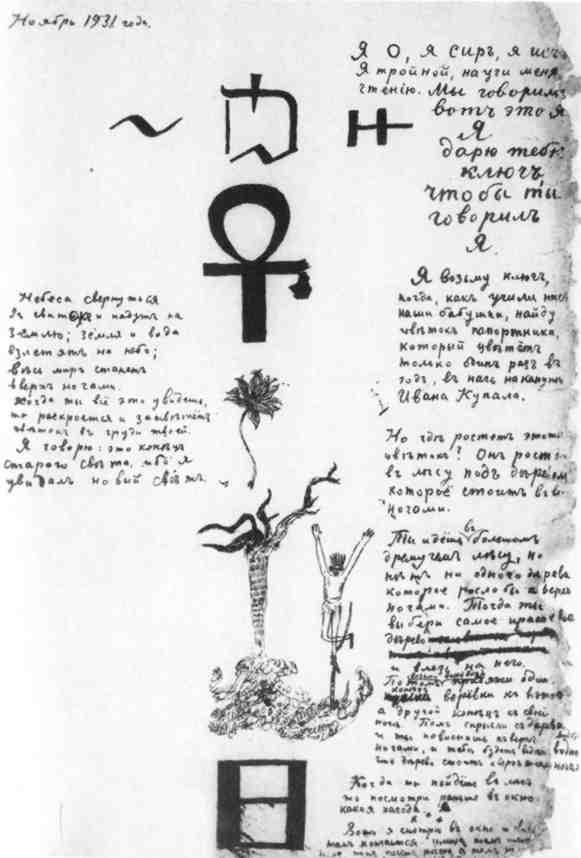 Ноябрь 1931 года.
Я О, я сиръ, я исч
Я тройной, научи меня
чтенію. Мы говоримъ
вотъ это я
Я
дарю тебѣ
ключъ,
чтобы ты
говорилъ
Я.
Я возьму ключъ,
когда, какъ учили насъ
наши бабушки, найду
цвѣтокъ папортника,
который цвѣтётъ
только одинъ разъ въ
годъ, въ ночь накануне
Ивана Купала.
Небеса свернутся
въ свитокъ и падутъ на
Землю; земля и вода
взлетятъ на небо;
весь міръ станетъ
вверхъ ногами.
Когда ты всё это увидешь,
то раскроется и зацвѣтётъ
цвѣтокъ въ груди твоей.
Я говорю: это конецъ
старого свѣта, ибо я
увидалъ новый свѣтъ.
Но гдѣ ростетъ этотъ
цвѣтокъ? Онъ ростетъ
въ лѣсу подъ деревом
которое стоитъ вверхъ
ногами.
Ты идёшь въ большомъ
дремучемъ лѣсу, но
нѣтъ ни одного дерева
которое росло бы вверхъ
ногами. Тогда ты
выбери самое красивое
дерево
и влезь на него.
Потомъ возьми верёвку привяжи один
конецъ верёвки къ вѣткѣ
а другой конецъ къ своей
ногѣ. Потомъ спрыгни съ дерева
и ты повиснешь кверху
ногами, и тебѣ будетъ видно
что дерево стоитъ кверху ногами
Когда ты пойдёшь въ лѣсъ
то посмотри раньше въ окно
какая погода.
Вотъ я смотрю въ окно и вижу
тамъ кончается улица